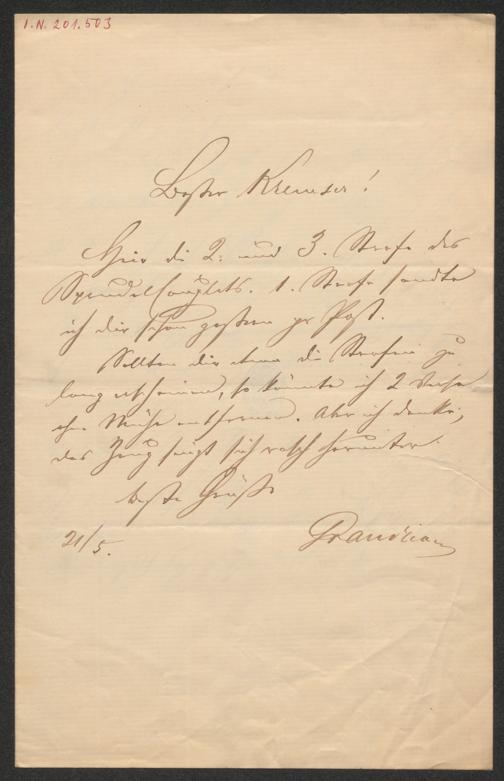 I.N. 201.503
Bester Kremser!
Hier die 2. und 3. Strofe des
Sprudelcouplets. 1. Strofe sandte
ich dir schon gestern pr Post.
Sollten dir etwa die Strofen zu
lang erscheinen, so könnte ich 2 Verse
ohne Mühe entfernen. Aber ich denke,
das Zeug singt sich rasch herunter.
Beste Grüße
21/5.
Grandjean